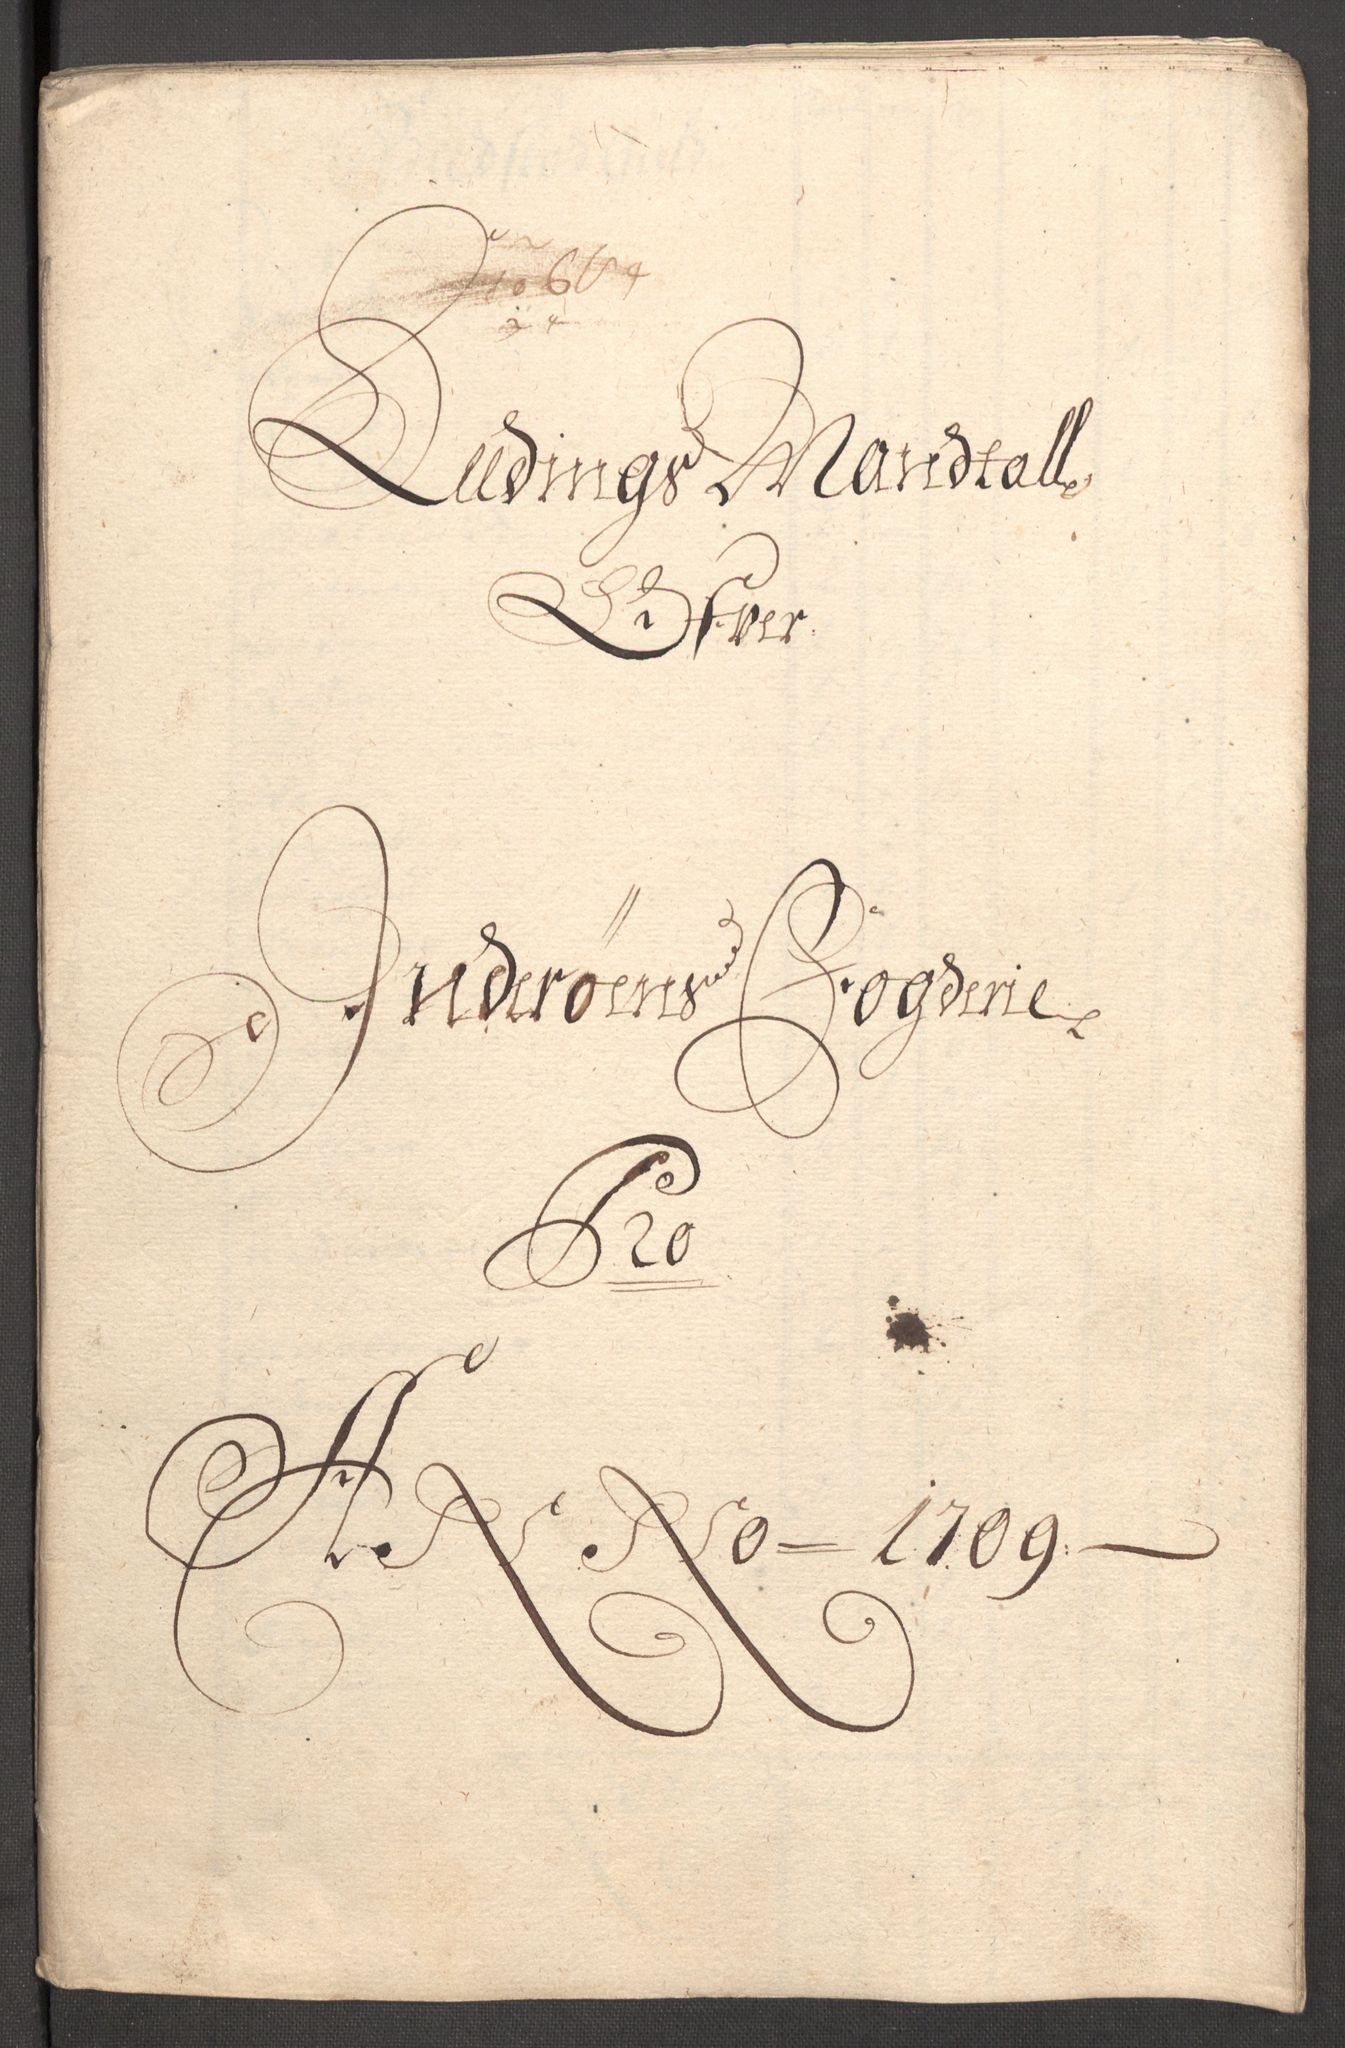 Leedings Mandtall
Ofver
Inderöens Fogderie
Pro
ANNO = 1709.